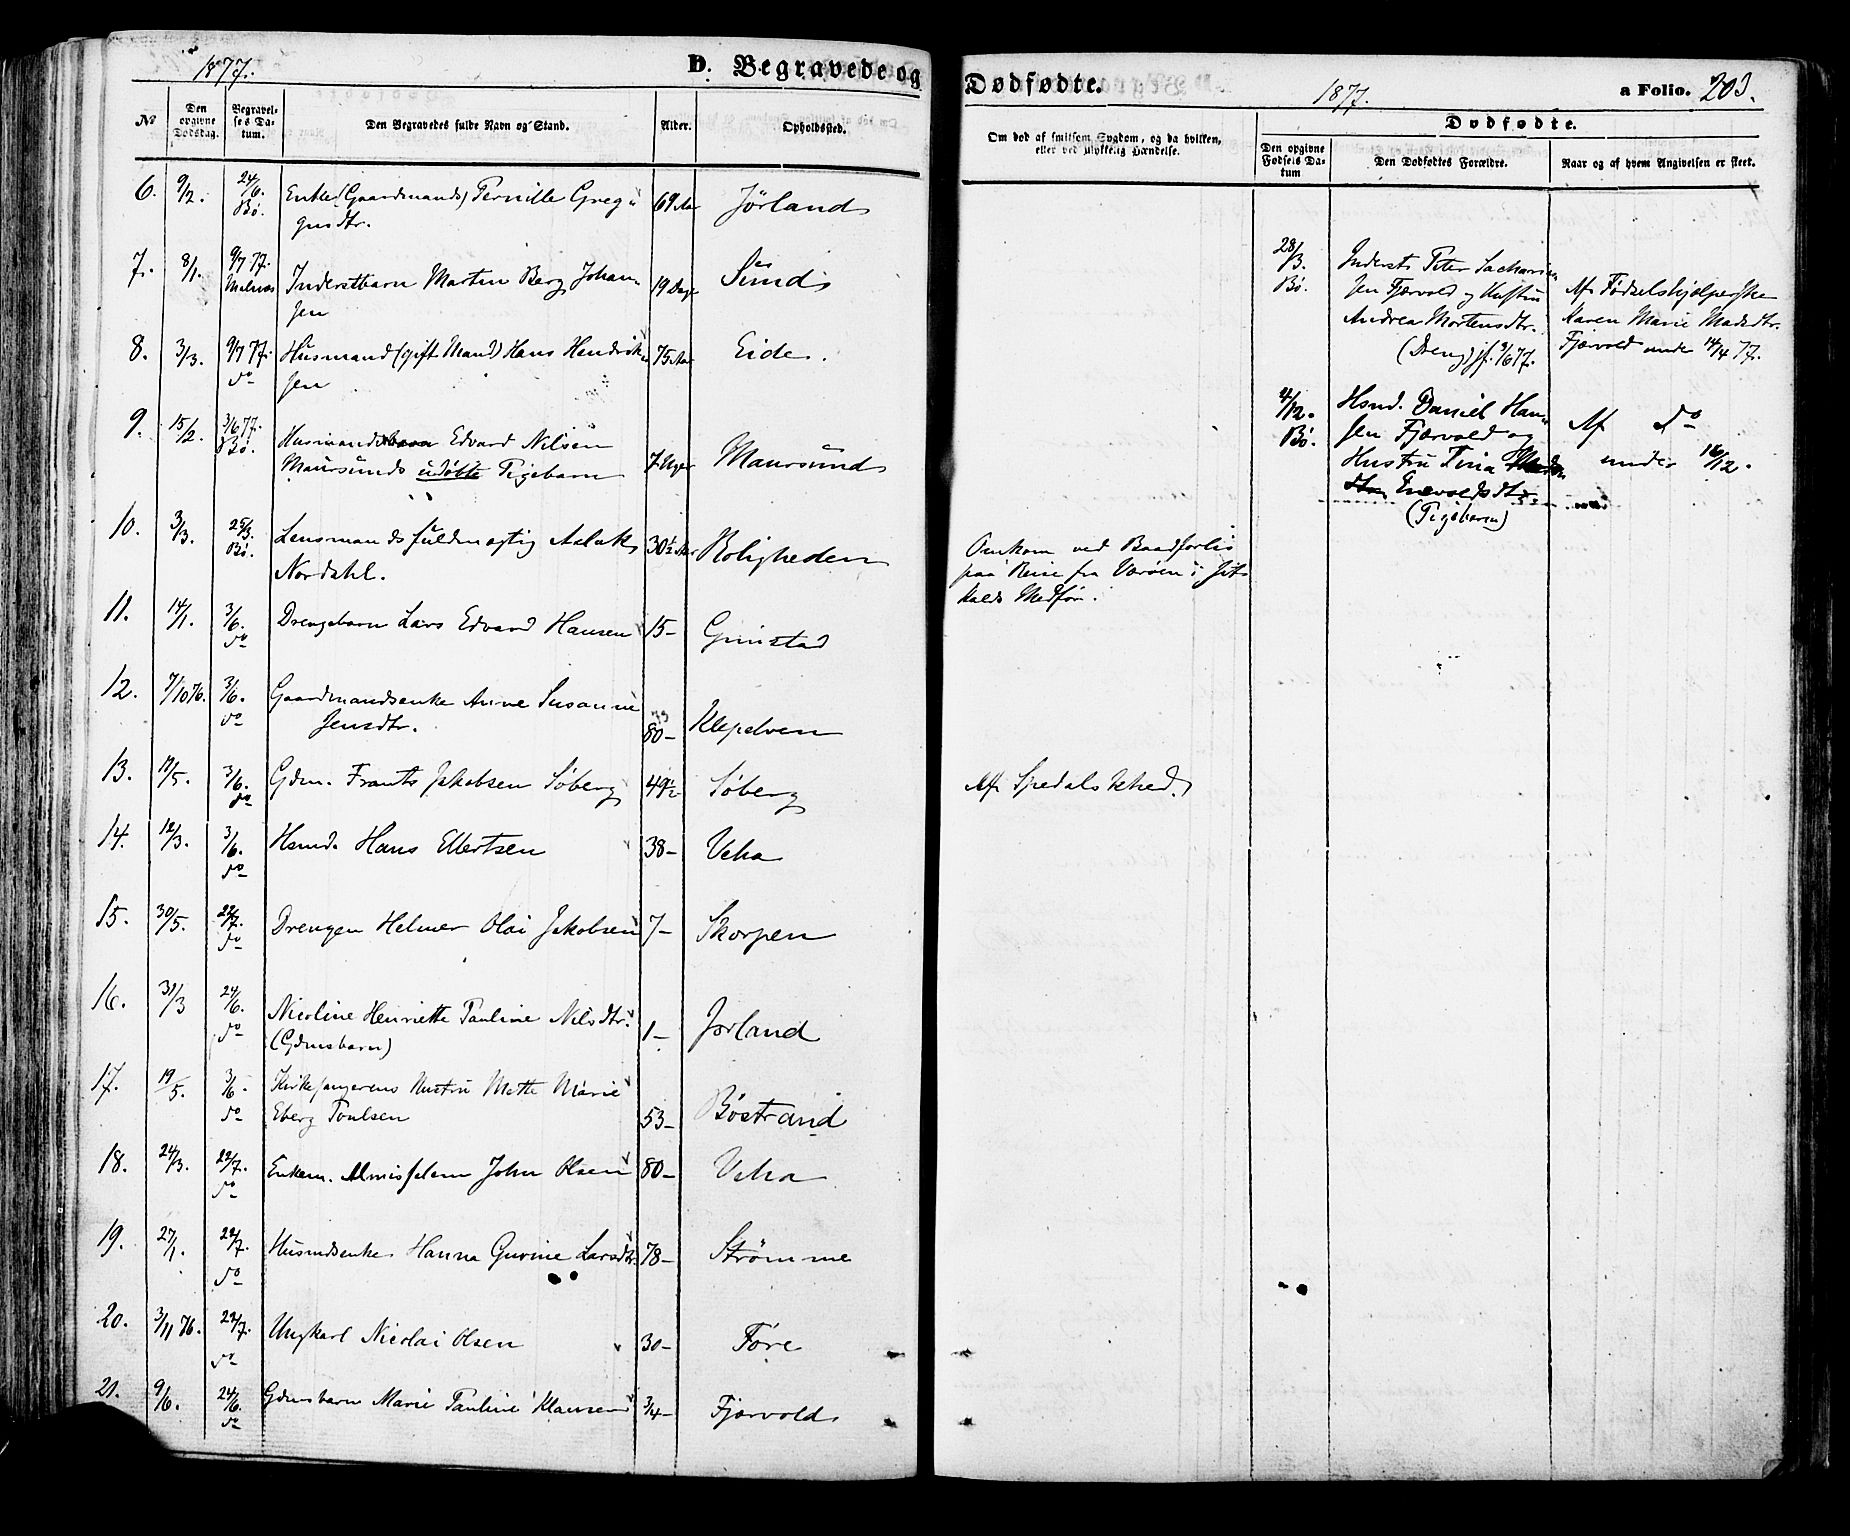 1877.
D. Begravede og
No
Den opgivne Dødsdag.
Begravelses Datum.
Den Begravedes fulde Navn og Stand.
Alder.
Opholdssted.
6. 9/2. 24/6. Bø. Enke (Gaardmands) Pernille Greg
gusdtr. 69 Aar Jørland
7. 8/1. 9/7 77. Melnæs Inderstbarn Martin Berg Johan-
sen 19 Dage Sund
8. 3/3. 9/7 77. do Husmand (gift Mand) Hans Hendrik
sen 75 Aar Eide.
9. 15/2. 3/6 77. Bø. Husmands Edvard Nilsen
Maursunds udøbte Pigebarn 7 Uger Maursund
10. 3/3. 25/3. Bø. Lensmandsfuldmægtig Aslak
Nordahl. 30½ Aar Roligheden
11. 14/1. 3/6. do Drengebarn Lars Edvard Hansen 15- Grimstad
12. 7/10 76. 3/6. do Gaardmandsenke Anne Susanne
Jensdtr. 79 80- Klepelven
13. 19/5. 3/6. do Gdm. Frants Jakobsen Søberg 49½ Søberg
14. 12/3. 3/6. do Hsmd. Hans Ellertsen 38- Veha
15. 30/5. 22/7. do Drengen Helmer Olai Jakobsen 7- Skorpen
16. 31/3 24/6. do Nicoline Henriette Pauline Nilsdtr.
(Gdmsbarn) 1- Jorland
17. 19/5. 3/6. do Kirkesangerens Hustru Mette Marie
Eberg Poulsen 53- Bøstrand
18. 24/3. 22/7. do Enkem. Almisselem John Olsen 80- Veha
19. 27/1. 22/7. do Husmdsenke Hanna Gurine Larsdtr. 78- Strømme
20. 3/11 76. 22/7. do Ungkarl Nicolai Olsen 30- Føre
21. 9/6. 24/6. do Gdmsbarn Marie Pauline Klausen 3/4- Fjærvold
Dødfødte.
1877.
a Folio. 203.
Om død af smitsom Sygdom, og da hvilken,
eller ved ulykkelig Hændelse.
Dødfødte.
Den opgivne Fødsels Datum
Den Dødfødtes Forældre.
Naar og af hvem Angivelsen er skeet.
28/3. Bø. Inderst Peter Sacharia
sen Fjærvold og Hustru
Andrea Mortensdtr.
(Dreng) jf. 9/6 77.
Af Fødselshjælperske
Karen Marie Madsdtr.
Fjærvold under 14/4 77.
4/12. Bø. Hsmd. Daniel Han-
sen Fjærvold og
Hustru Tina
Enevoldsdtr
(Pigebarn)
Af do
under 16/12.
Omkom ved Baadforlis
paa Reise fra Værøen i
Medfør.
Af Spedalskhed.